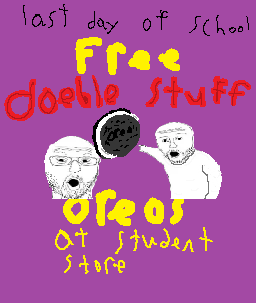 last day of school
Free
doeble stuff
oreo
oreos
at student
store